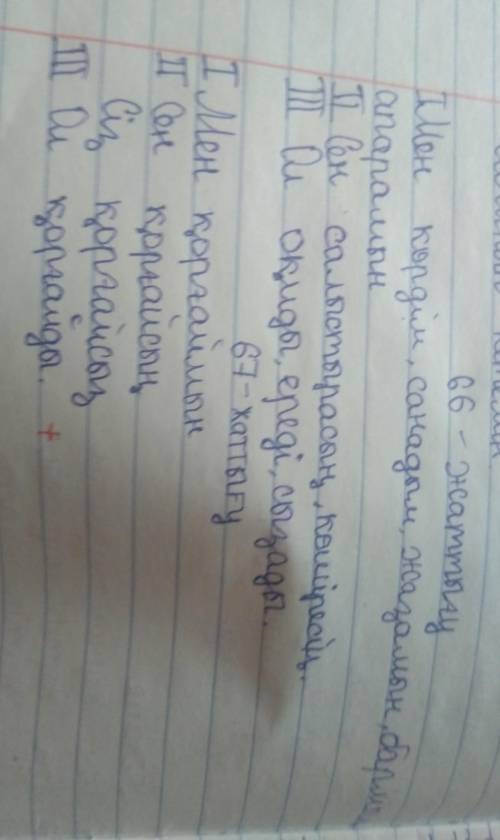 66 - жаттығу
I Мен көрдім, санадым, жазамын,
апарамын
II Сен салыстырасың, көшіресің.
III Ол оқиды, ереді, сызады.
67 - жаттығу
I Мен қорғаймын
II Сен қорғайсың
Сіз қорғайсыз
III Ол қорғайды.